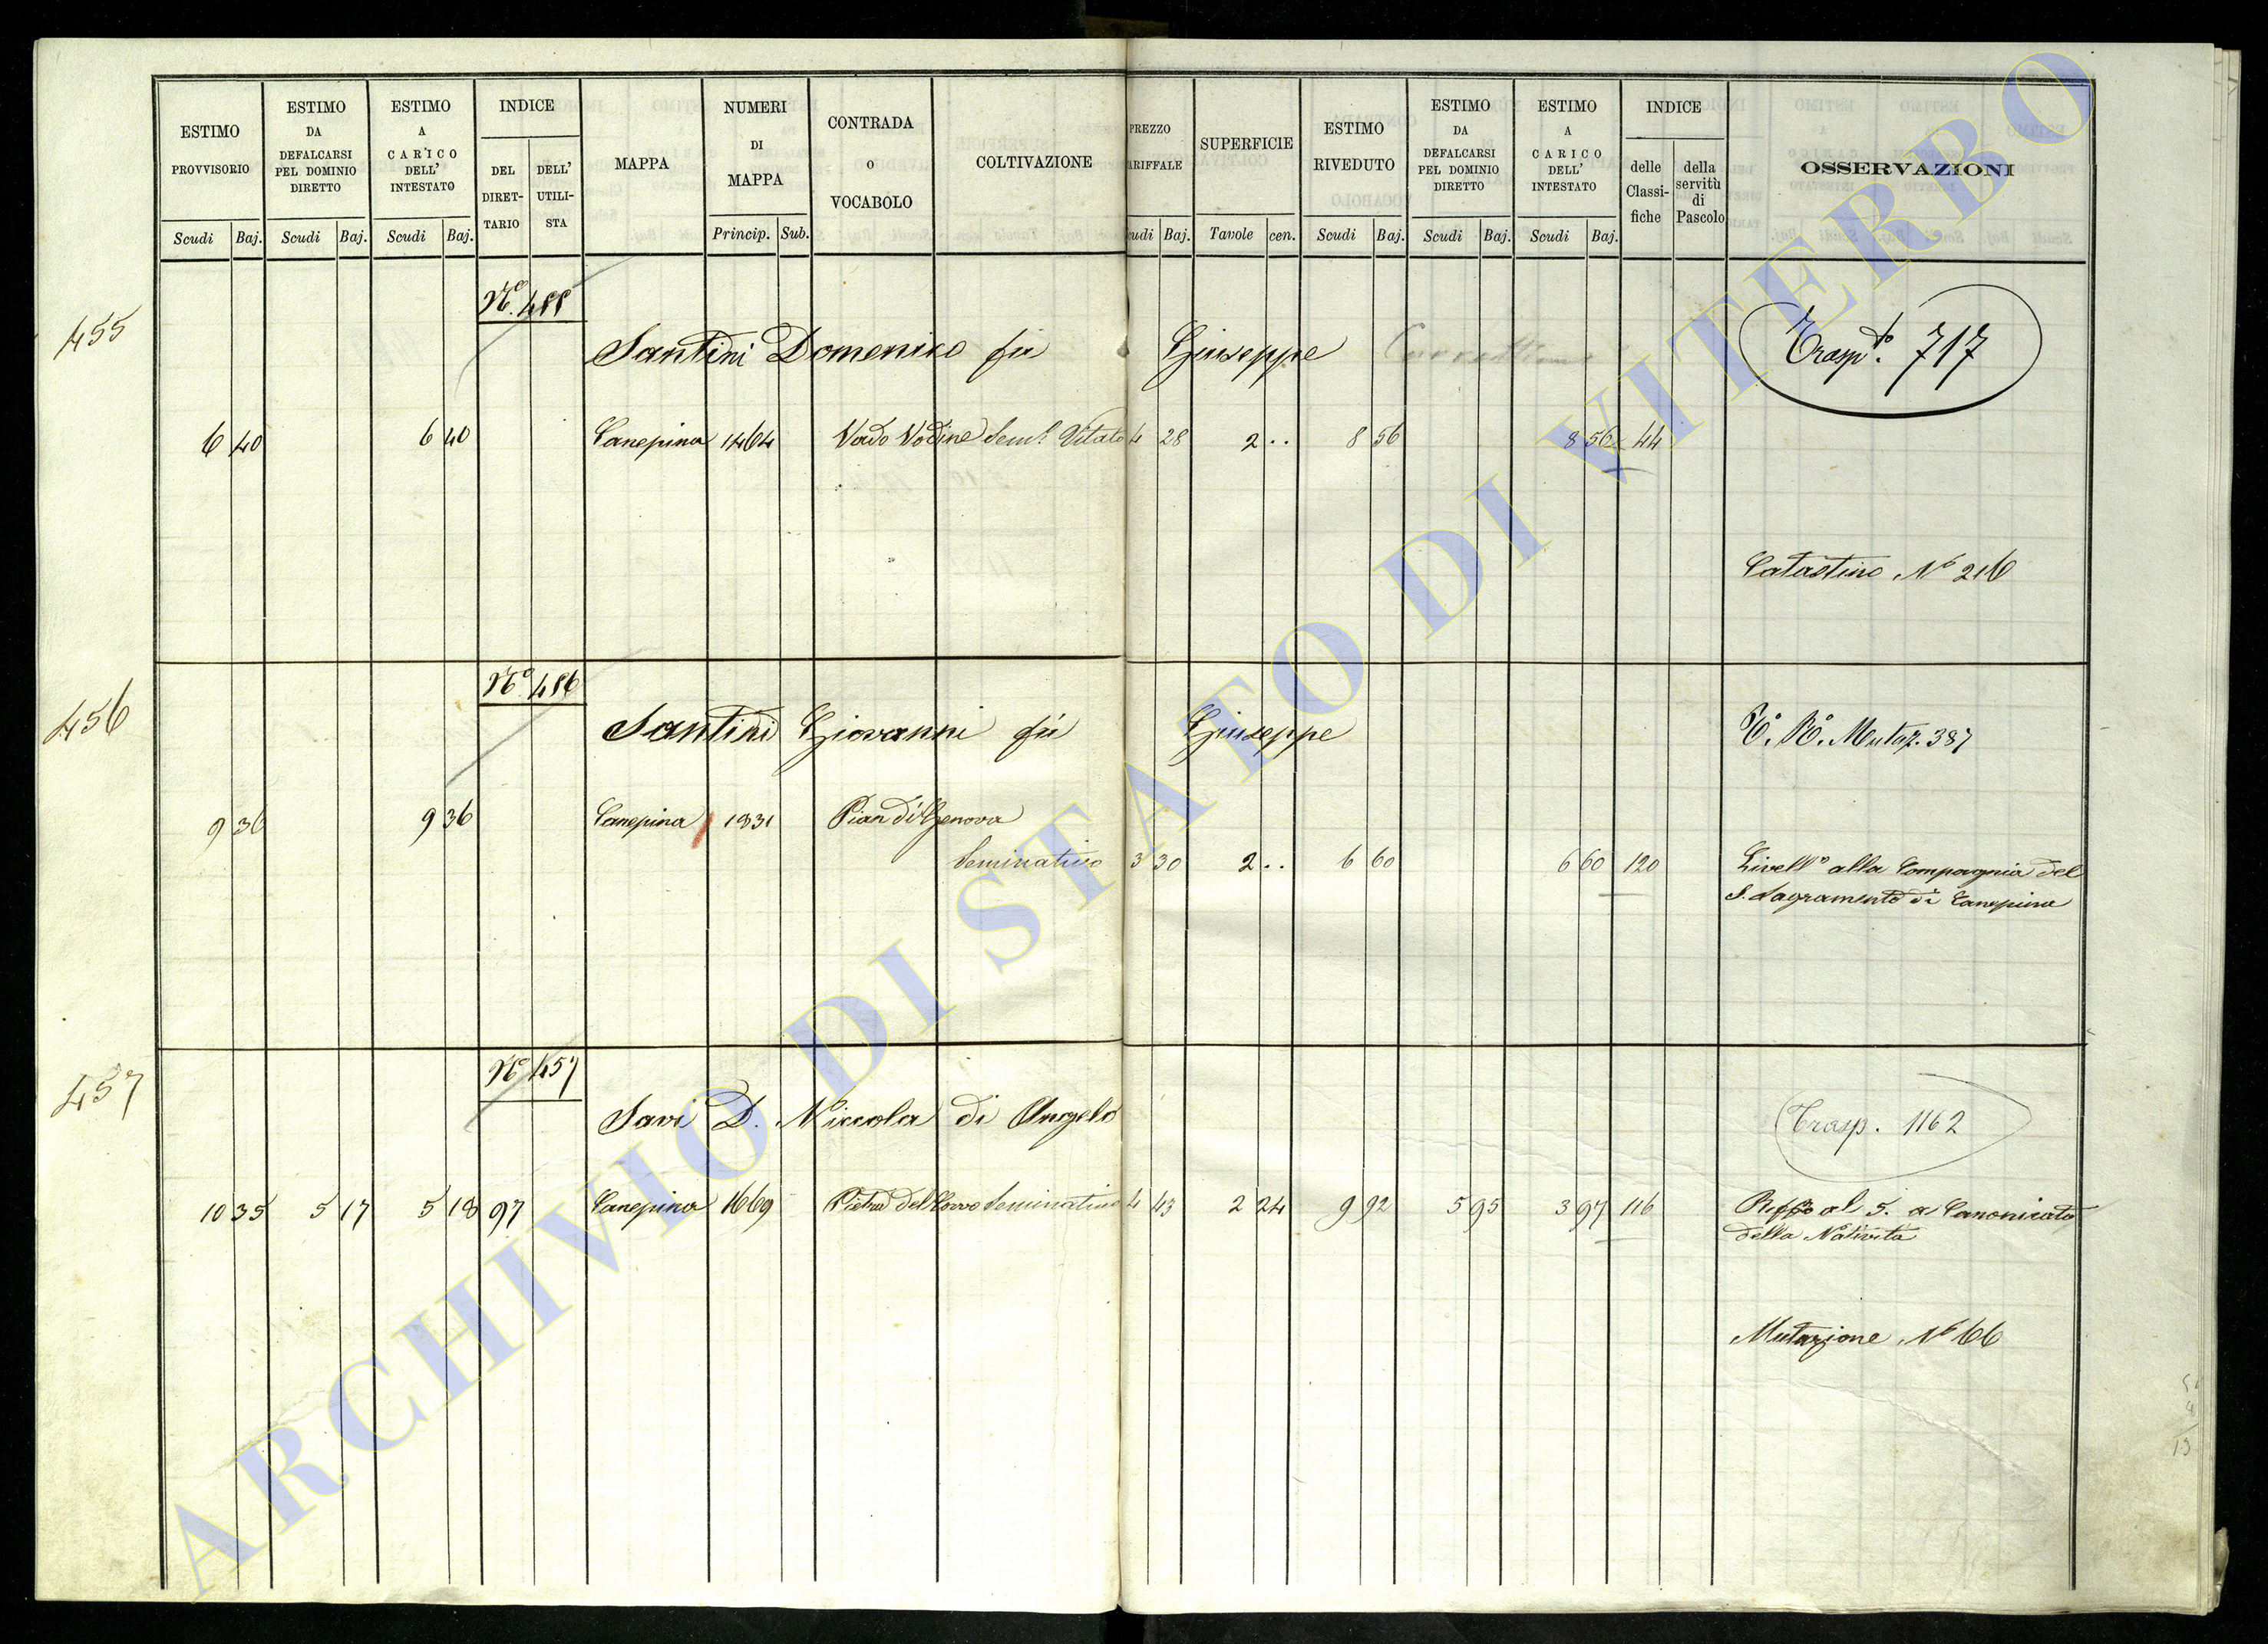 ESTIMO PROVVISORIO
ESTIMO DA DEFALCARSI PEL DOMINIO DIRETTO
ESTIMO A CARICO DELL' INTESTATO
INDICE
DEL DIRETTARIO
DELL' UTILISTA
MAPPA
NUMERI DI MAPPA
CONTRADA O VOCABOLO
COLTIVAZIONE
PREZZO ARIFFALE
SUPERFICIE
ESTIMO RIVEDUTO
ESTIMO DA DEFALCARSI PEL DOMINIO DIRETTO
ESTIMO A CARICO DELL' INTESTATO
INDICE
delle Classifiche
della servitù di Pascolo
OSSERVAZIONI
Scudi Baj. Scudi Baj. Scudi Baj. Princip. Sub. udi Baj. Tavole cen. Scudi Baj. Scudi Baj. Scudi Baj.
455
Nº 455
Santini Domenico fu Giuseppe
Trasp.to 717
6 40 6 40 Canepina 1464 Vado Vodine Sem.o Vitato 4 28 2 .. 8 56 8 56 44
Catastino Nº 216
456
Nº 456
Santini Giovanni fù Giuseppe
Mutaz. 387
9 36 9 36 Canepina 1831 Pian di Genova
Seminativo 3 30 2 .. 6 60 6 60 120
Livell.o alla Compagnia del
S. Sagramento di Canepina
457
Nº 457
Savi D. Niccola di Angelo
Trasp. 1162
10 35 5 17 5 18 97 Canepina 1669 Pietra del Corvo Seminativo 4 43 2 24 9 92 5 95 3 97 116
al 5. a Canonicato
della Natività
Mutazione Nº 66
13
ARCHIVIO DI STATO DI VITERBO